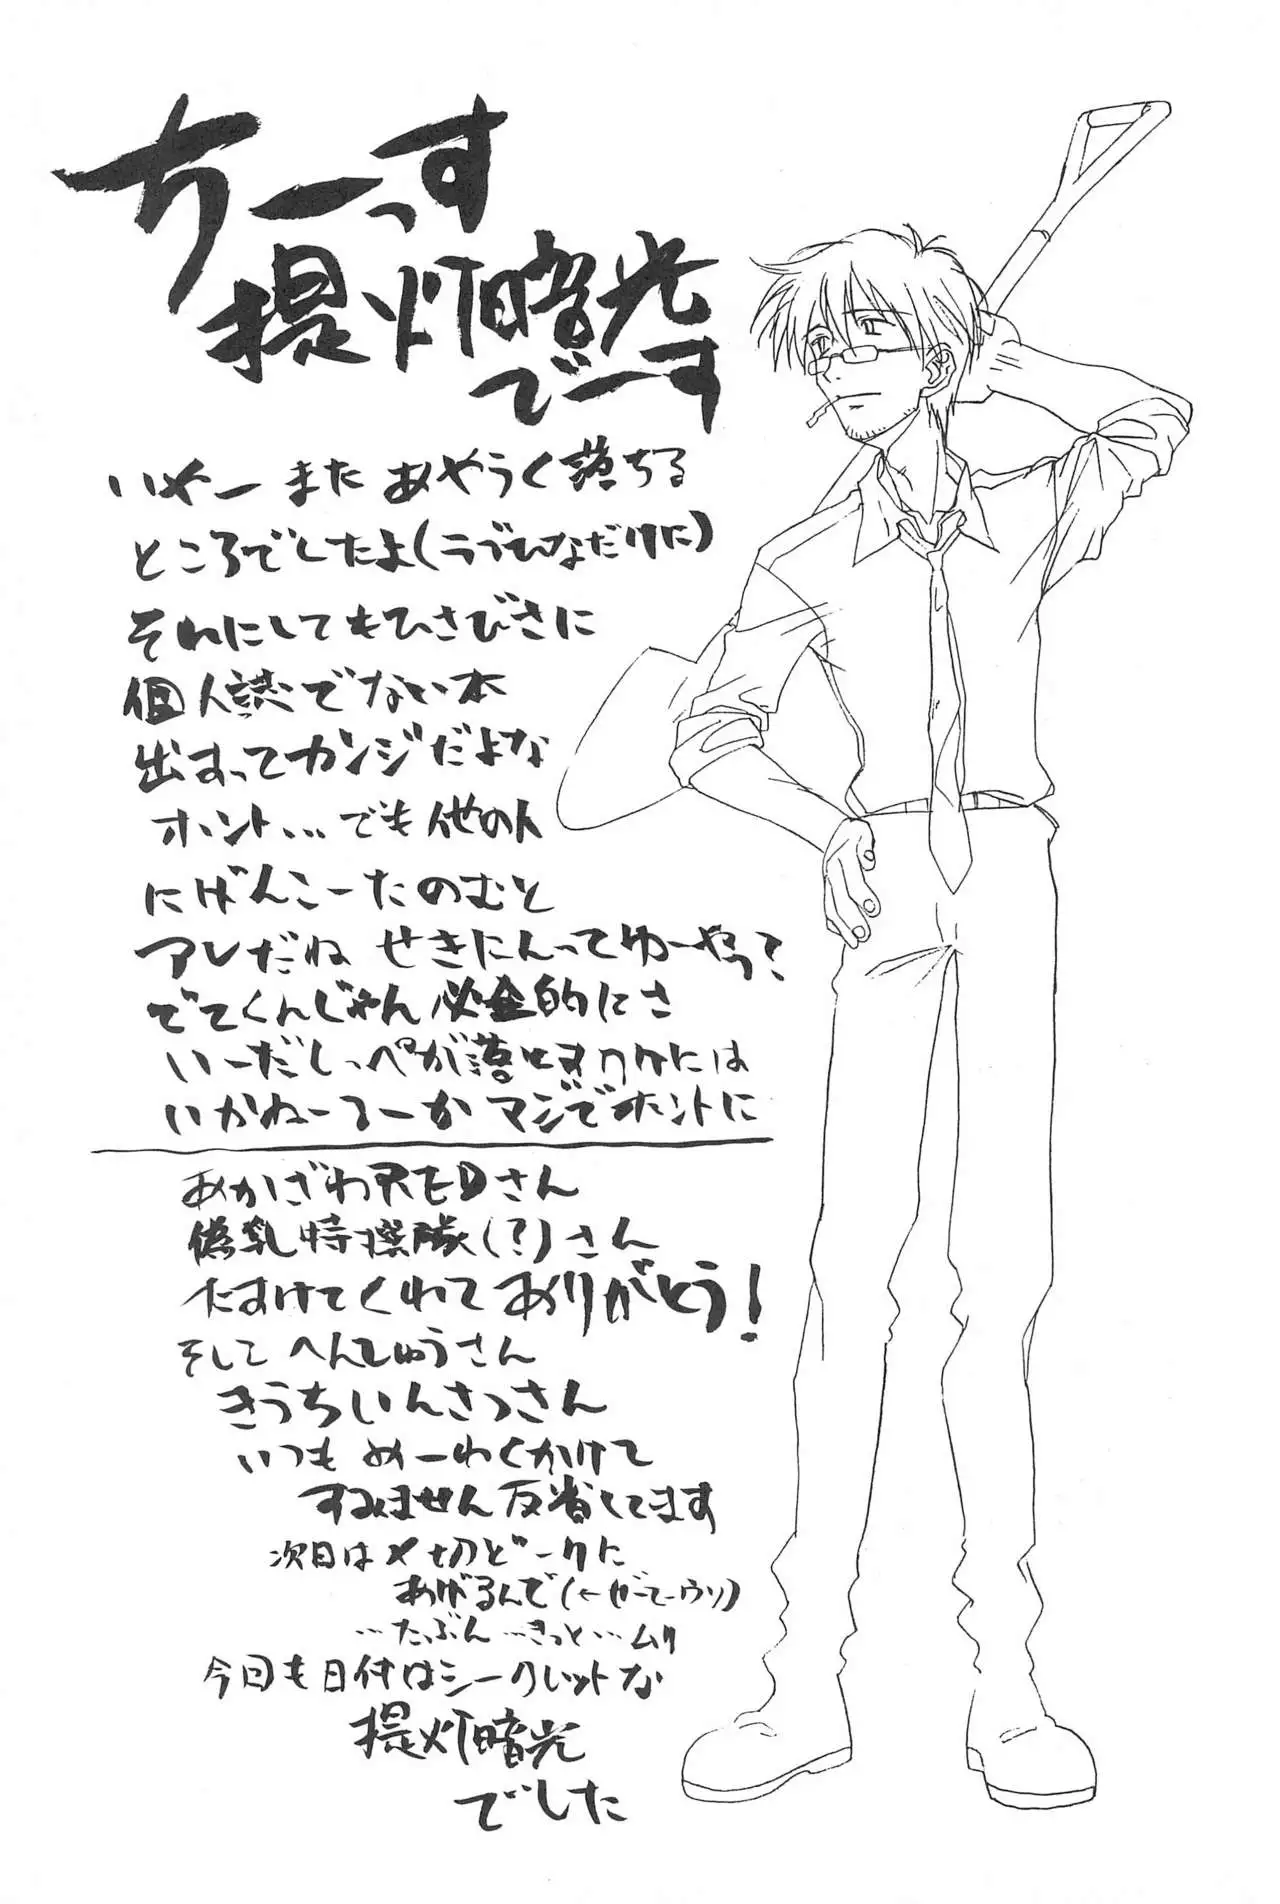 ちーっす
提灯暗光
でーす
いやー また あやうく落ちる
ところでしたよ(ラブひなだけに)
それにしてもひさびさに
個人誌でない本
出すってカンジだよな
ホント… でも他の人
にげんこーたのむと
アレだね せきにんってゆーやつ?
でてくんじゃん必全的にさ
いーだしっぺが落とすワケには
いかねーるーか マジでホントに
あかざわREDさん
偽乳特捜隊(?)さん
たすけてくれて ありがとう!
そして へんしゅうさん
きうちいんさつさん
いつも めーわくかけて
すみません反省してます
次回は〆切どーりに
あげるんで(←ぜってーウソ)
…たぶん…きっと…ムリ
今回も日付はシークレットな
提灯暗光
でした